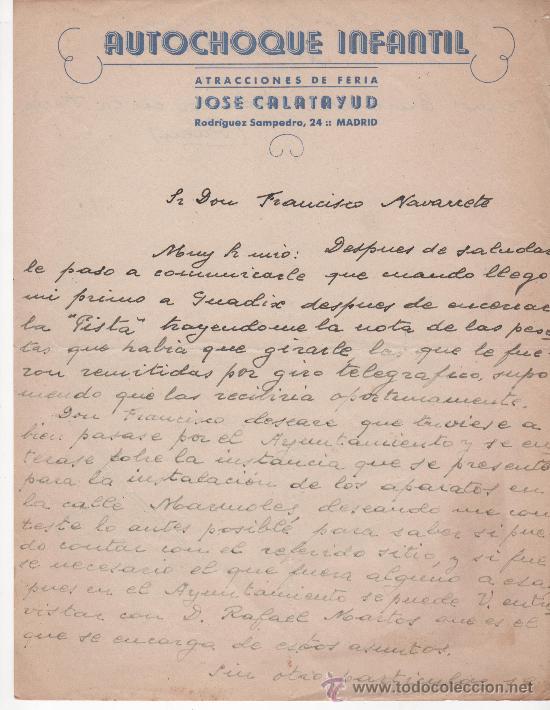 AUTOCHOQUE INFANTIL
ATRACCIONES DE FERIA
JOSE CALATAYUD
Rodríguez Sampedro, 24 :: MADRID
Sr Don Francisco Navarrete
Muy Sr mio: Despues de saludar
le paso a comunicarle que cuando llego
mi primo a Guadix despues de encerrar
la "Pista" trayendome la nota de las pese
tas que habia que girarle, las que le fue
ron remitidas por giro telegrafico, supo
niendo que las recibiria oportunamente.
Don Francisco deseare que tuviese a
bien pasase por el Ayuntamiento y se en
terase sobre la instancia que se presento
para la instalación de los aparatos en
la calle Marmoles, deseando me con
teste lo antes posible para saber si pue
do contar con el referido sitio, y si fue
se necesario el que fuera alguno a esa,
pues en el Ayuntamiento se puede V. entre
vistar con D. Rafael Martos que es el
que se encarga de estos asuntos.
Sin otro particular se
todocoleccion.net